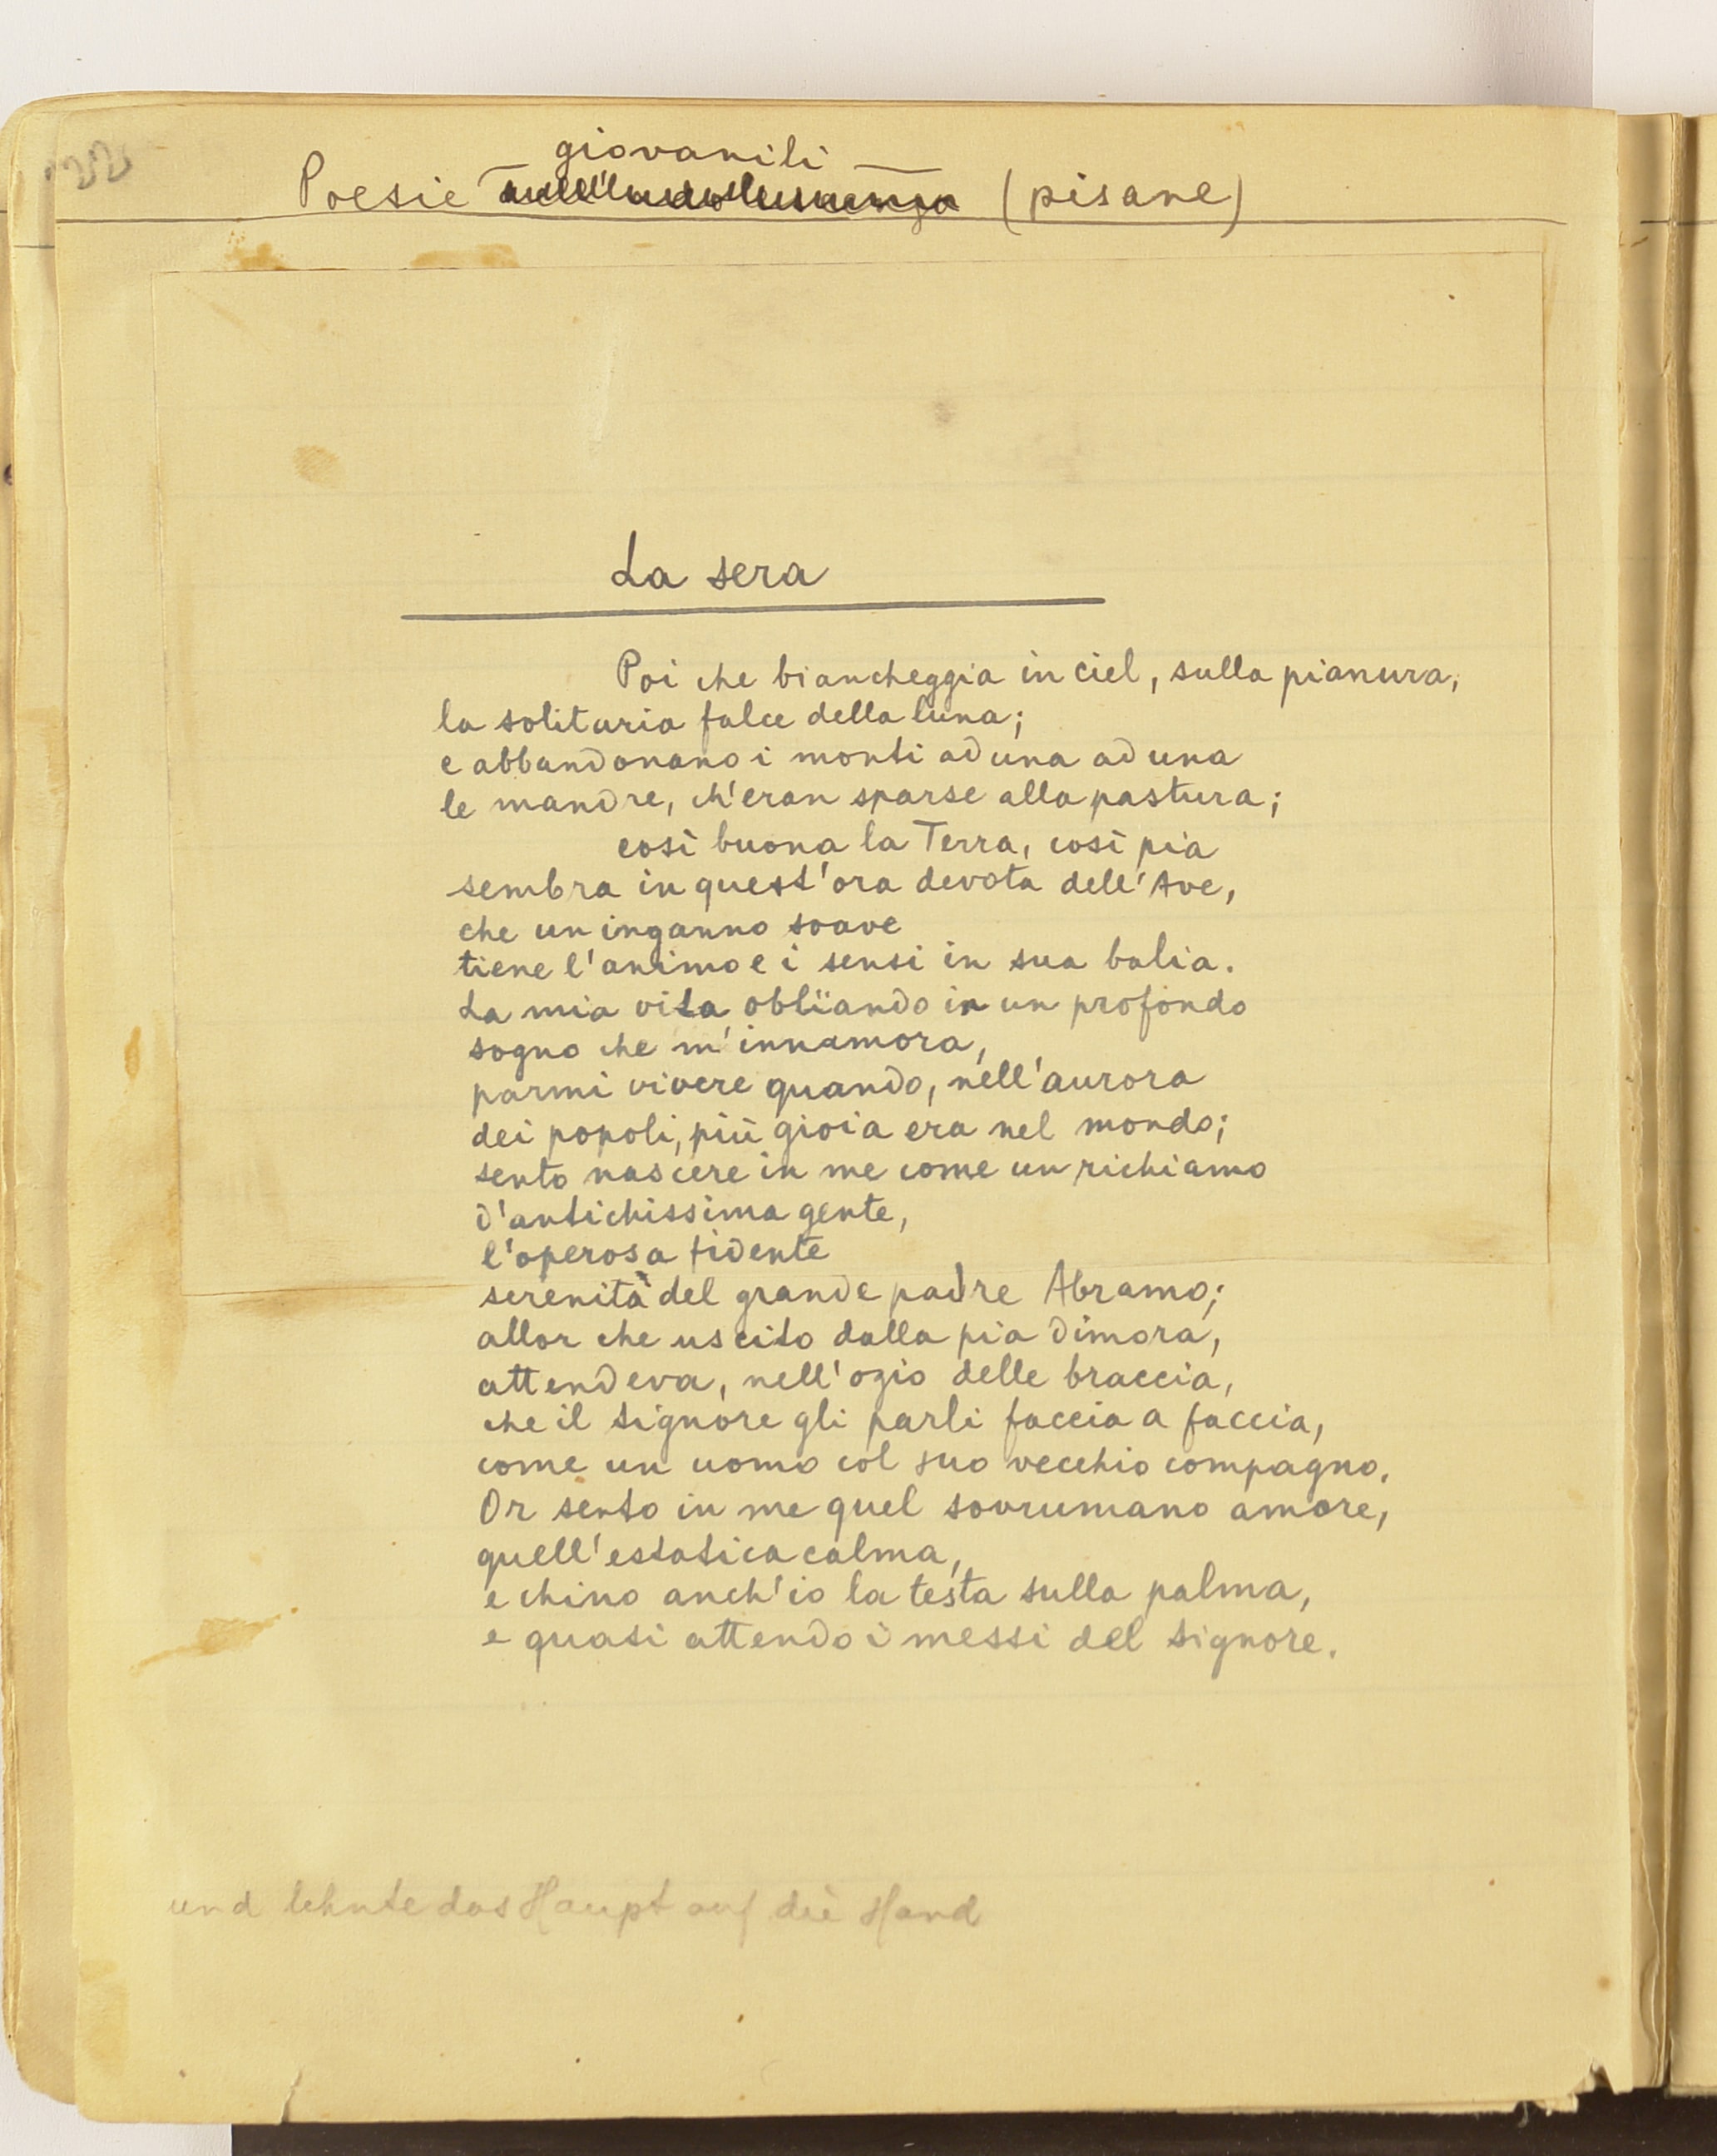 22
giovanili
Poesie dell'adolescenza (pisane)
La sera
Poi che biancheggia in ciel, sulla pianura,
la solitaria falce della luna;
e abbandonano i monti ad una ad una
le mandre, ch'eran sparse alla pastura;
così buona la Terra, così pia
sembra in quest'ora devota dell'Ave,
che un inganno soave
tiene l'animo e i sensi in sua balia.
La mia vita oblïando in un profondo
sogno che m'innamora,
parmi vivere quando, nell'aurora
dei popoli, più gioia era nel mondo;
sento nascere in me come un richiamo
d'antichissima gente,
l'operosa fidente
serenità del grande padre Abramo;
allor che uscito dalla pia dimora,
attendeva, nell'ozio delle braccia,
che il Signore gli parli faccia a faccia,
come un uomo col suo vecchio compagno.
Or sento in me quel sovrumano amore,
quell'estatica calma,
e chino anch'io la testa sulla palma,
e quasi attendo i messi del Signore.
und lehnte das Haupt auf die Hand